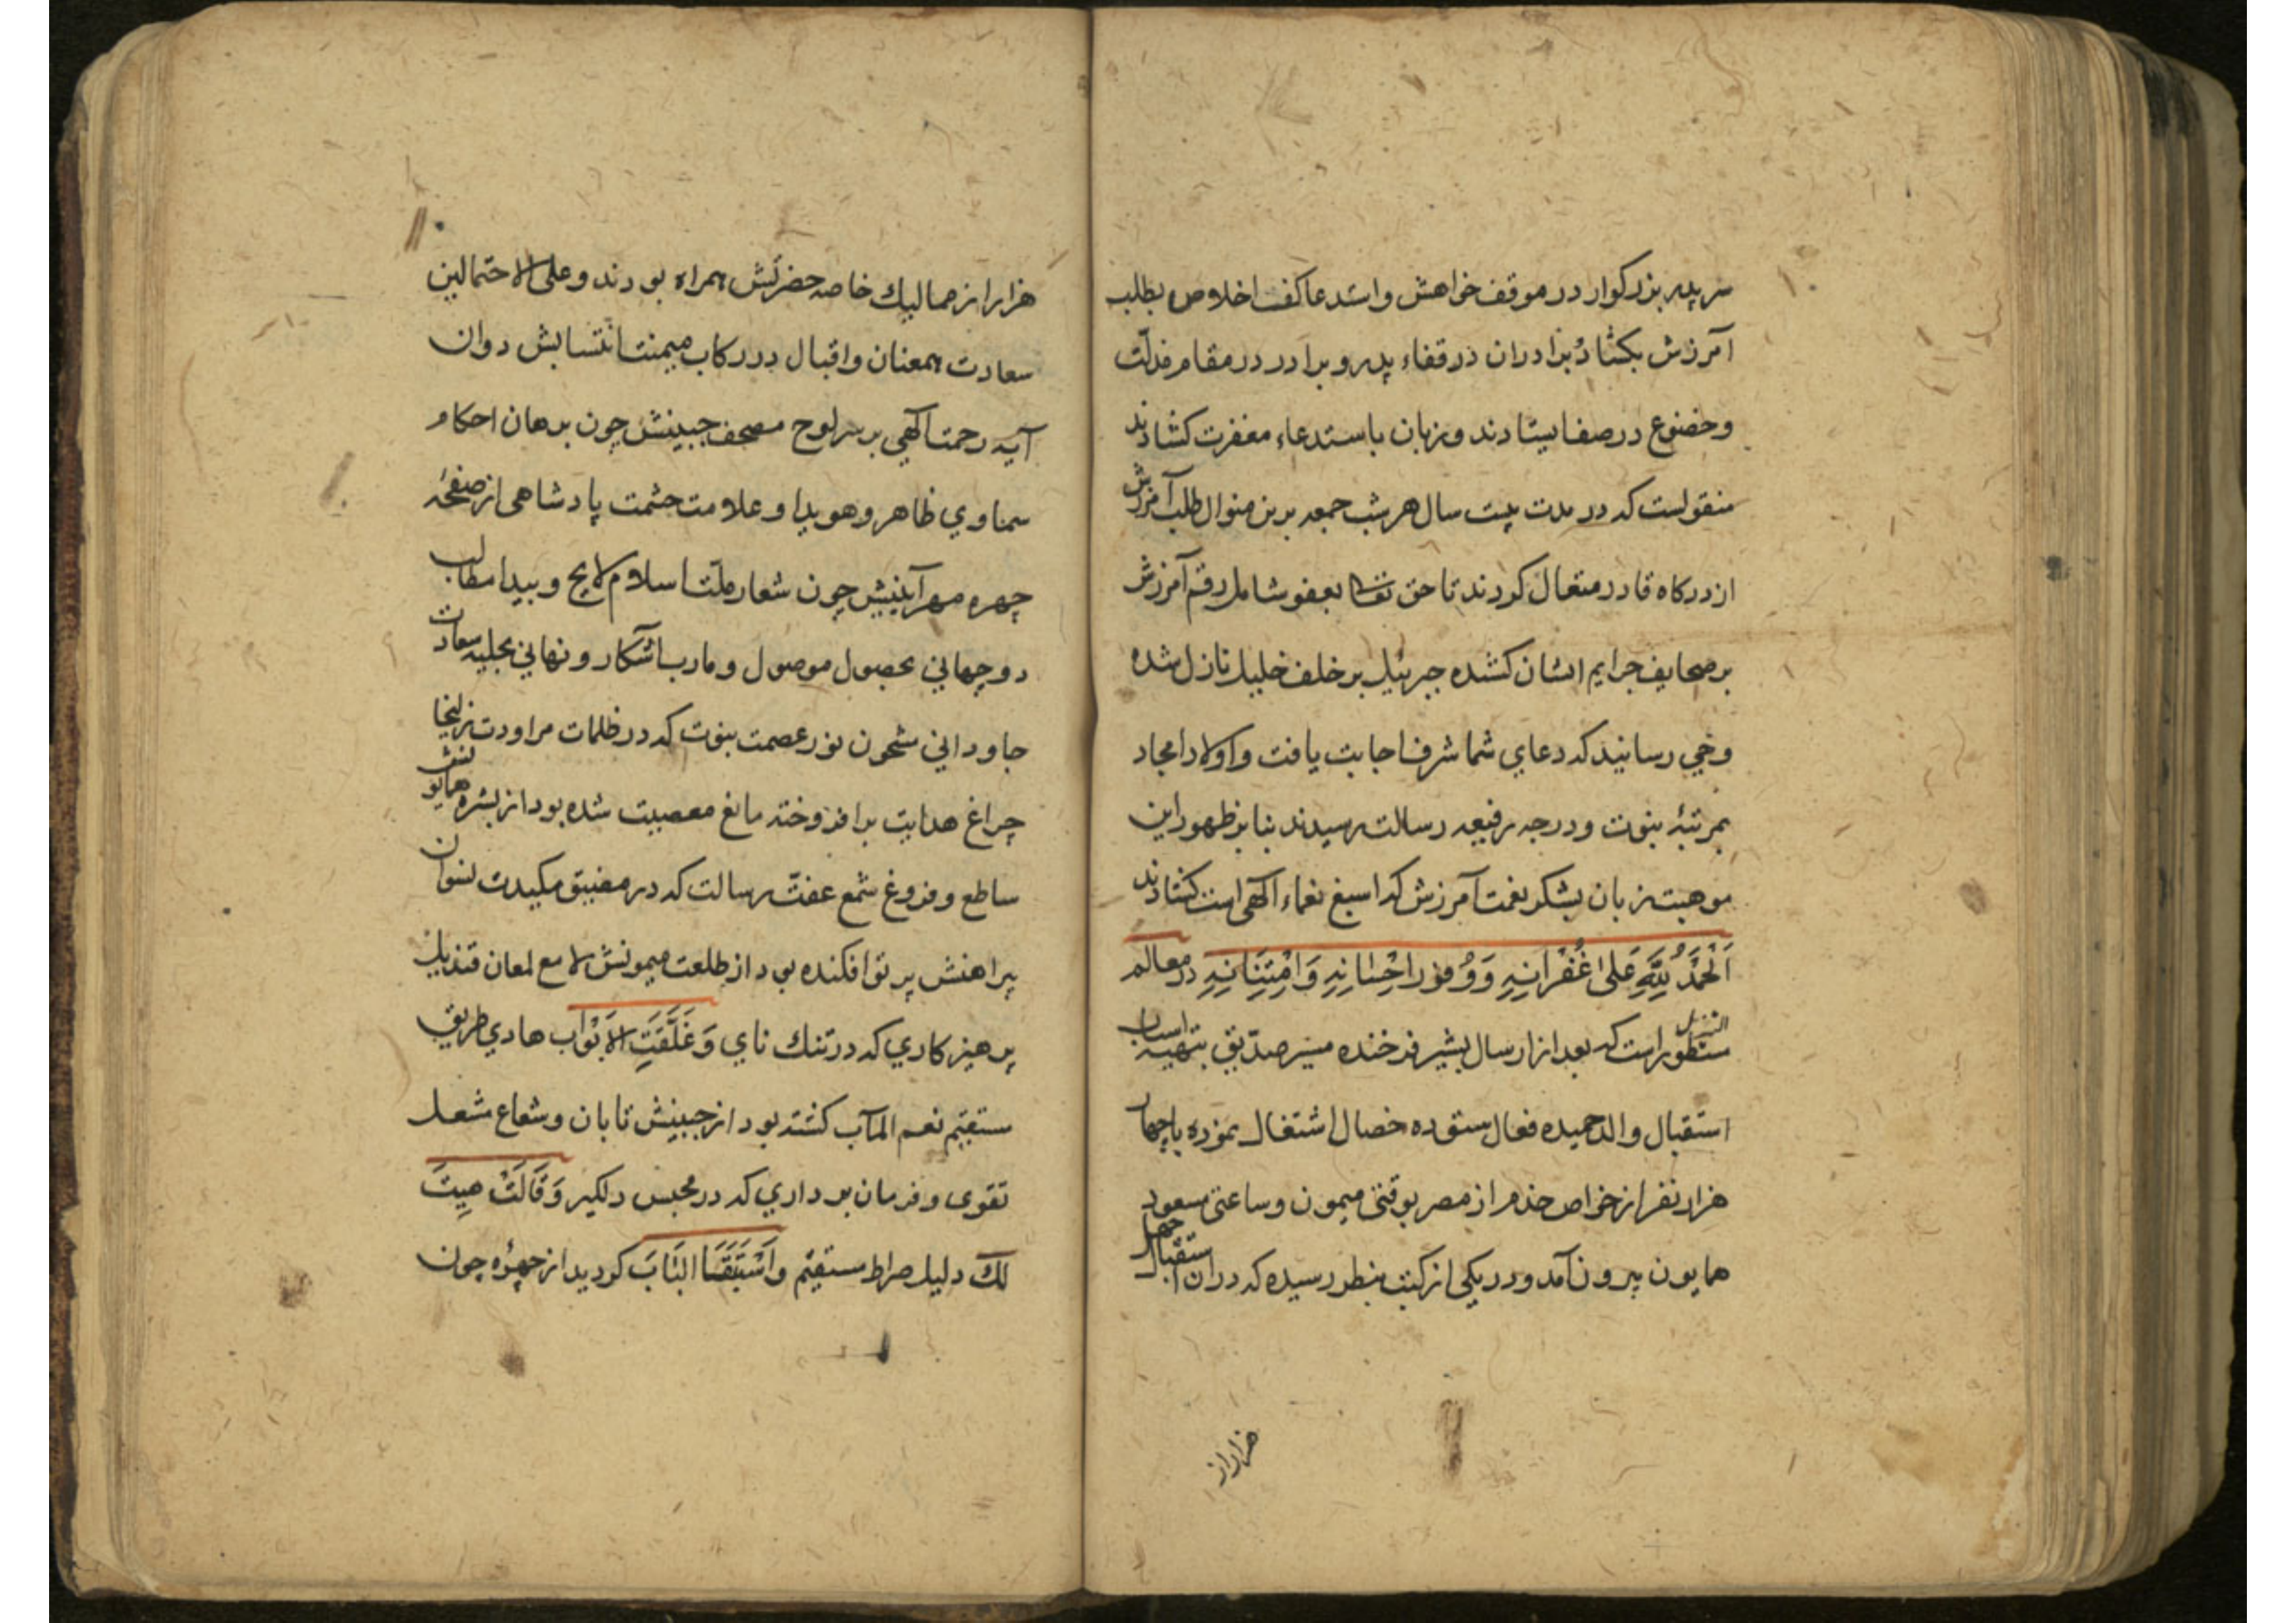 ۱۰
سر پدر بزرکوار در موقف خواهش و استدعا کف اخلاص بطلب
آمرزش بکشاد برادران در قفاء پدر و برادر در مقام مذلّت
و خضوع در صف ایستادند و زبان باستدعاء مغفرت کشادند
منقولست که در مدت بیست سال هر شب جمعه برین منوال طلب آمرزش
از درکاه قادر متعال کردند تا حق تعالی بعفو شامل رقم آمرزش
بر صحایف جرایم ایشان کشده جبرئیل بر خلف خلیل نازل شده
وحی رسانید که دعای شما شرف اجابت یافت و اولاد امجاد
بمرتبۀ نبوت و درجه رفیعه رسالت رسیدند بنا بر ظهور این
موهبت زبان بشکر نعمت آمرزش که اسبغ نعماء الهی است کشادند
اَلْحَمْدُ لِلّهِ عَلیٰ غُفْرَانِهِ وَ وُفُورِ اِحْسَانِهِ وَ امْتِنَانِهِ در معالم
التنزیل مسطور است که بعد از ارسال بشیر فرخنده مسیر صدّیق بتهیه اسباب
استقبال والد حمیده فعال ستوده خصال اشتغال نموده با چهار
هزار نفر از خواص خدم از مصر بوقتی میمون و ساعتی مسعود
همایون بیرون آمد و در یکی از کتب بنظر رسیده که در ان استقبال چهل
هزار از
۱۱
هزار از ممالیك خاصه حضرتش همراه بودند و علی الاحتمالین
سعادت همعنان و اقبال در رکاب میمنت انتسابش دوان
آیه رحمت آلهی بر سر لوح مصحف جبینش چون برهان احکام
سماوی ظاهر و هویدا و علامت حشمت پادشاهی از صفحۀ
چهره مهر آیینش چون شعار ملّت اسلام لایح و پیدا مطالب
دو جهانی بحصول موصول و مارب آشکار و نهانی بحلیه سعادت
جاودانی مشحون نور عصمت نبوت که در ظلمات مراودت زلیخا
چراغ هدایت برافروخته مانع معصیت شده بود از بشره همایونش
ساطع و فروغ شمع عفّت رسالت که در مضیق مکیدت نسوان
پیراهنش پرتو افکنده بود از طلعت میمونش لامع لمعان قندیل
پرهیزکاری که در تنك نای وَ غَلَّقَتِ الاَبْوَاب هادی طریق
مستقیم نعم المآب کشته بود از جبینش تابان و شعاع مشعل
تقوی و فرمان برداری که در محبس دلکیر وَ قَالَتْ هِیتَ
لَكَ دلیل صراط مستقیم وَ اَسْتَبَقَا البَابَ کردید از چهرۀ چون